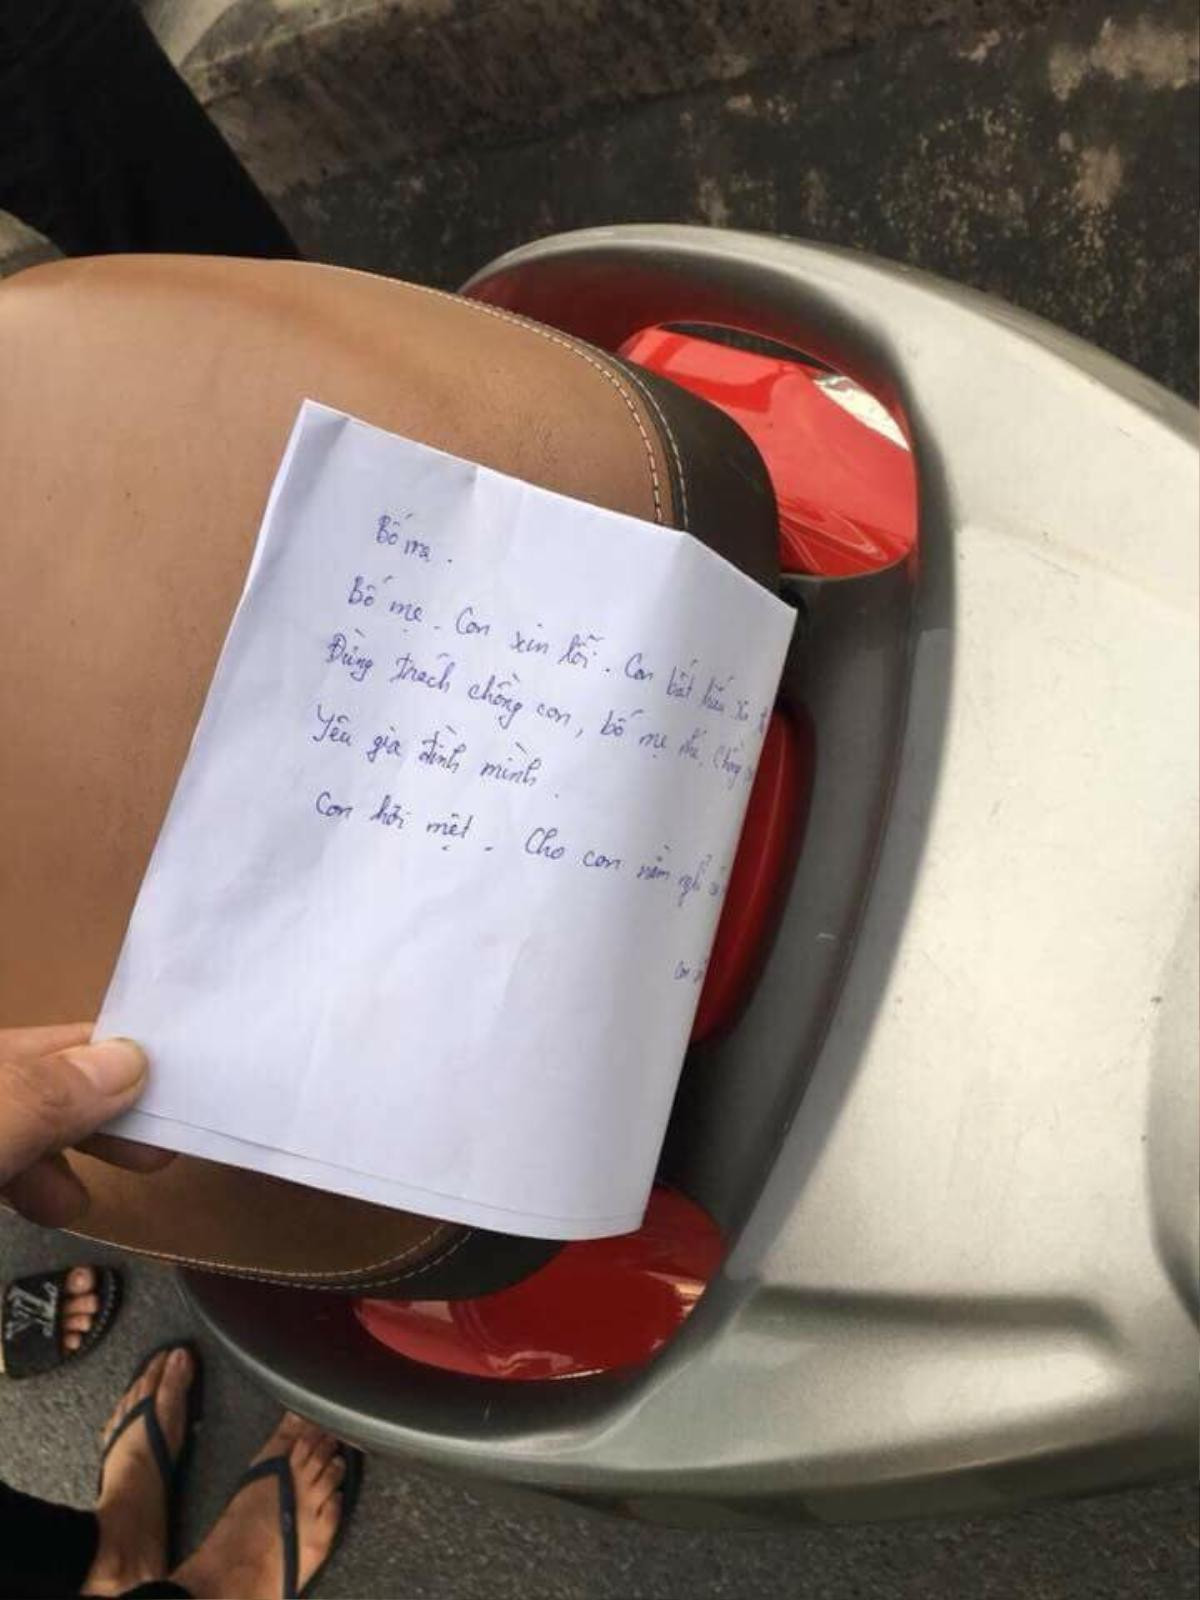 Bố mẹ.
Bố mẹ. Con xin lỗi. Con bất hiếu
Đừng trách chồng con, bố mẹ nhé. Chồng
Yêu gia đình mình.
Con hơi mệt. Cho con nằm nghỉ
con